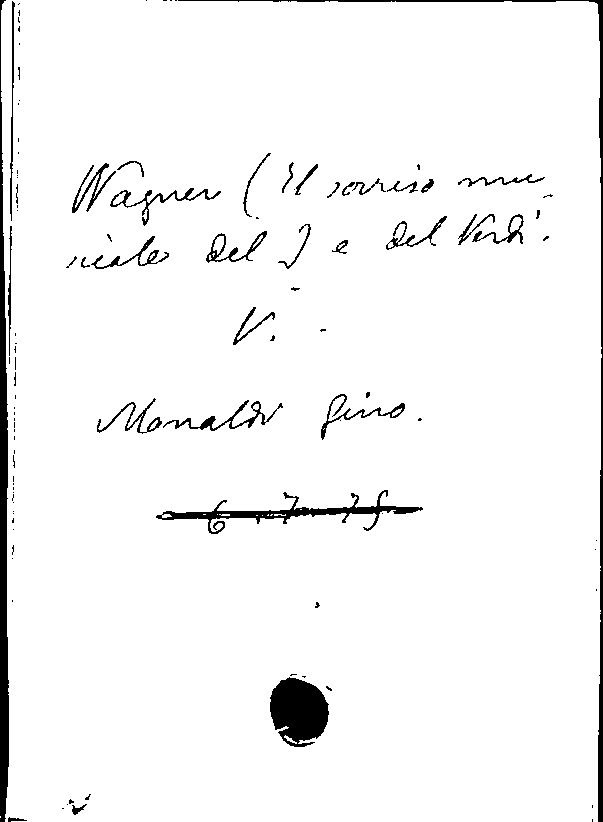 Wagner (Il sorriso mu-
sicale del ) e del Verdi.
V. -
Monaldi Gino.
6.7.75